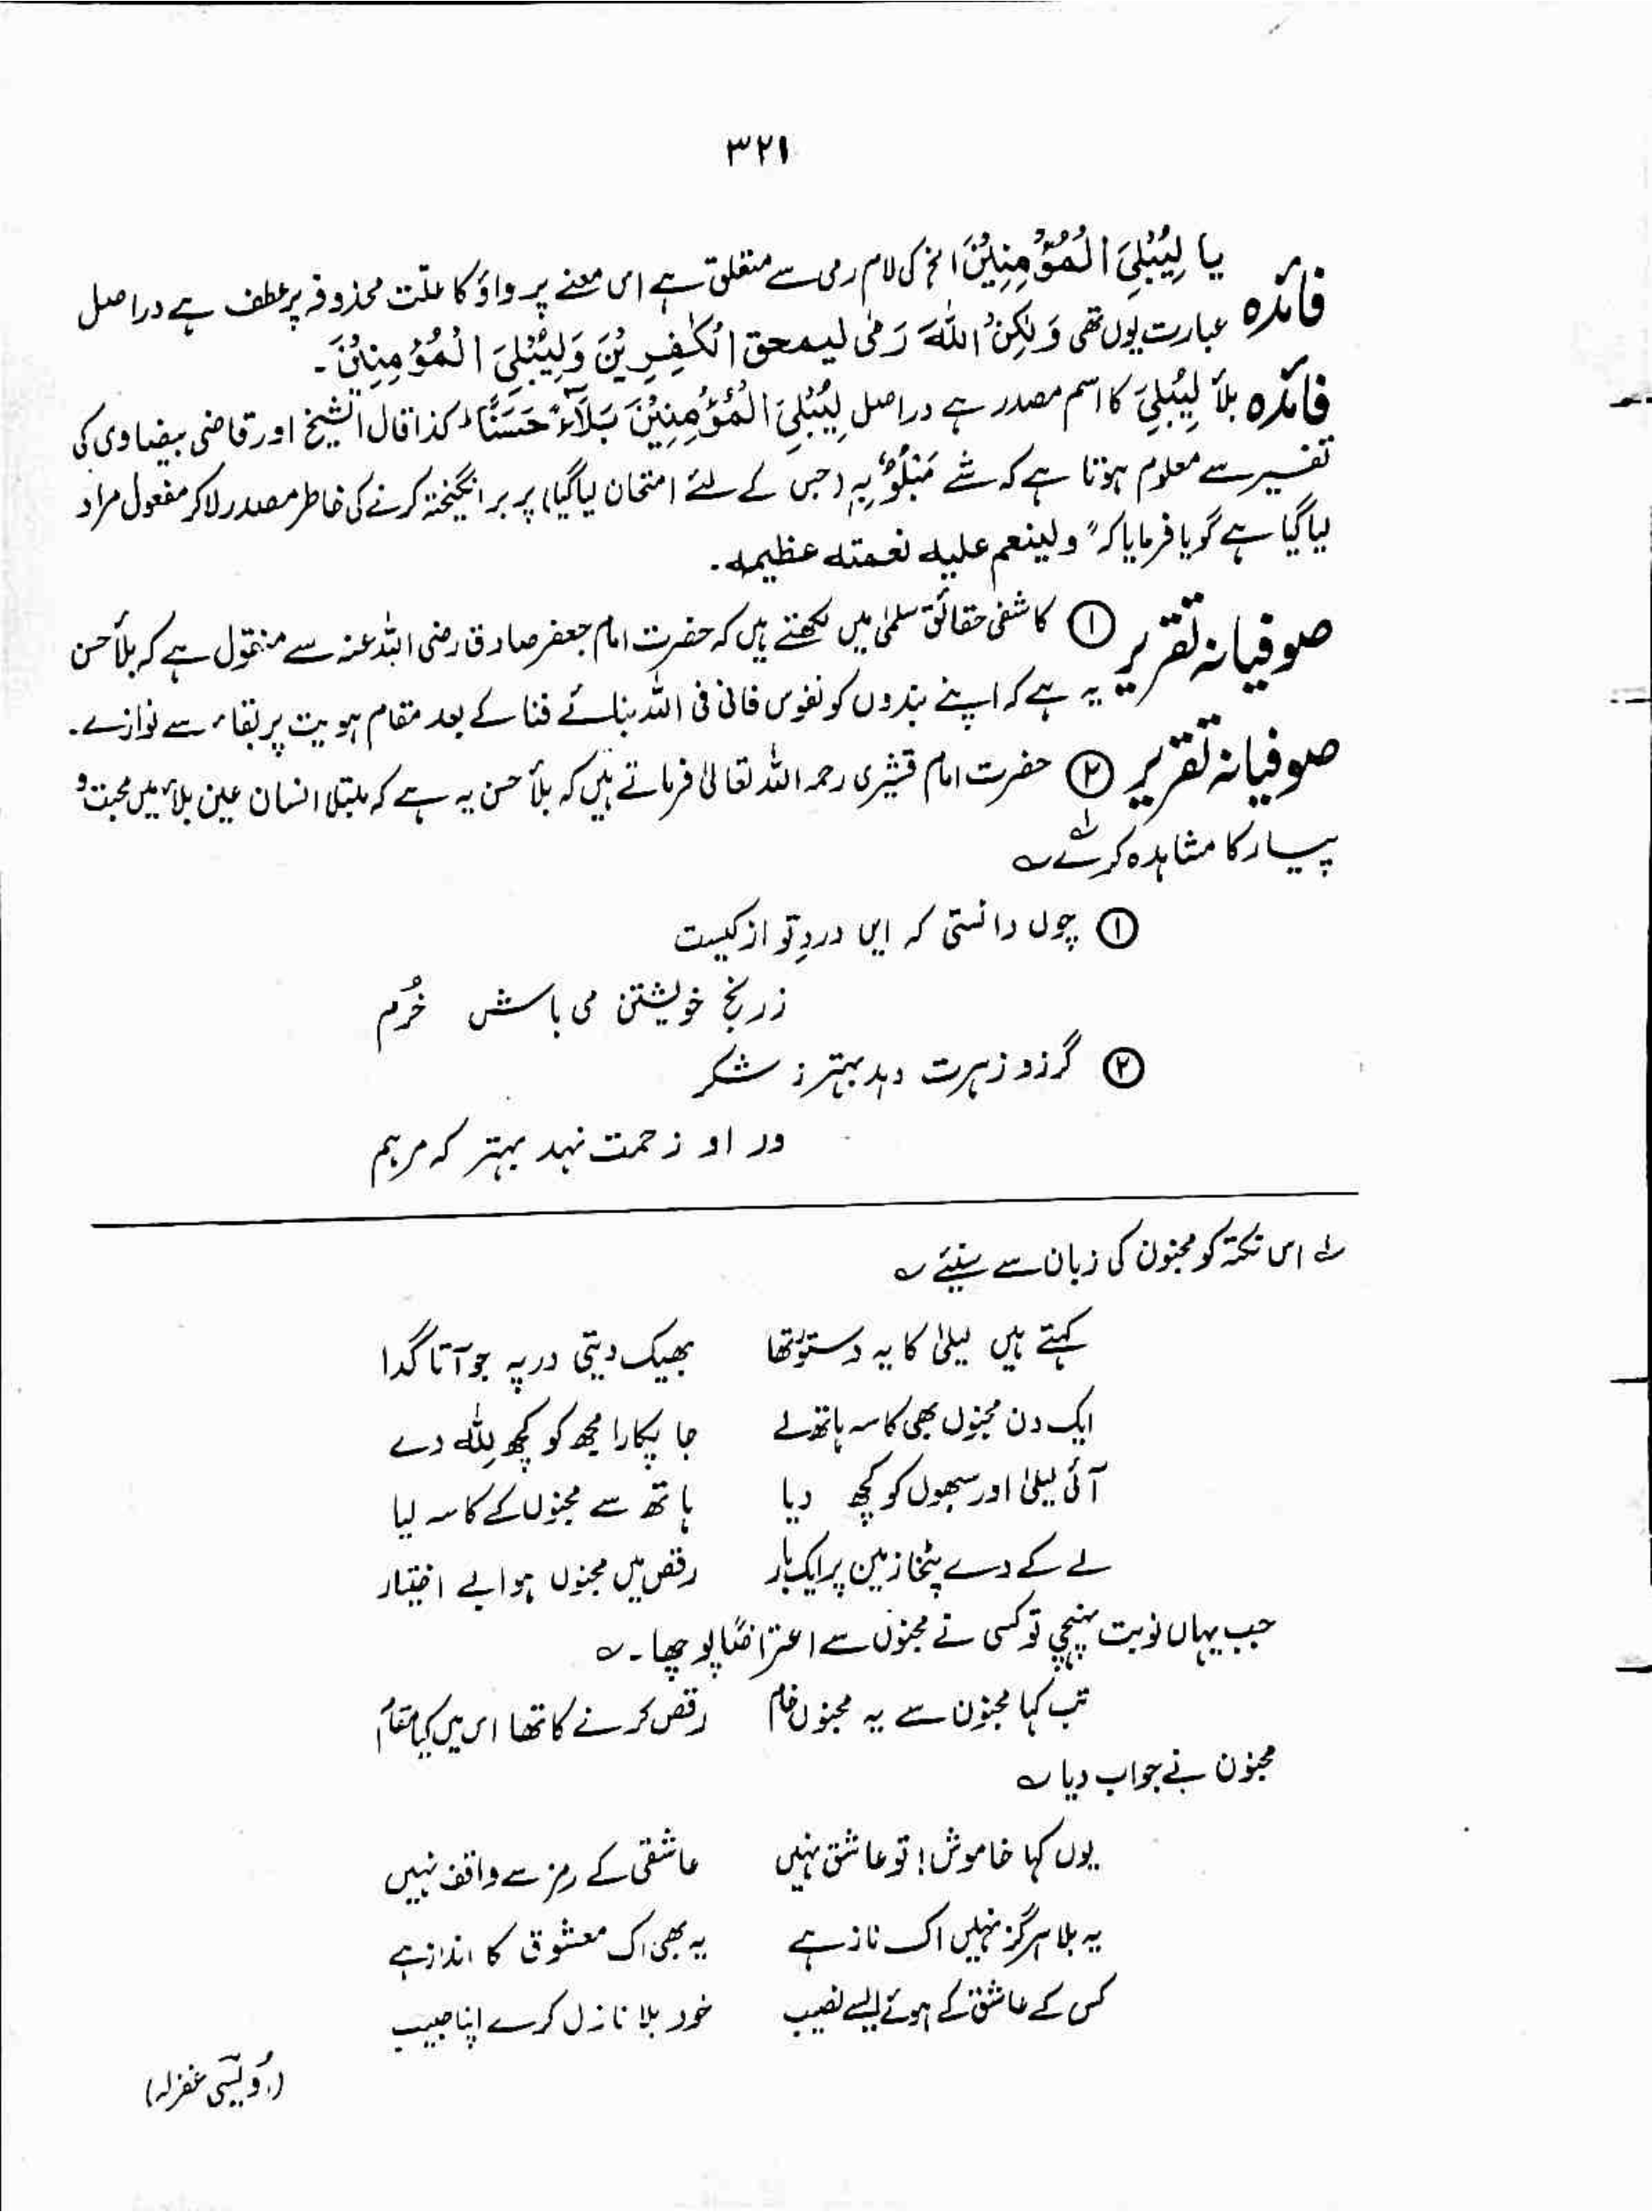 ۳۲۱
فائدہ یا لِیُبْلِیَ الْمُؤْمِنِیْنَ الخ کی لام رمی سے متعلق ہے اس معنے پر واؤ کا علّت محذوفہ پر عطف ہے دراصل
عبارت یوں تھی وَلٰکِنْ اللّٰہَ رَمٰی لیمحق الْکٰفِرِیْنَ وَلِیُبْلِیَ الْمُؤْمِنِیْنَ۔
فائدہ بلأ لِیُبْلِیَ کا اسم مصدر ہے دراصل لِیُبْلِیَ الْمُؤْمِنِیْنَ بَلَآءً حَسَنًاء کذا قال الشیخ اور قاضی بیضاوی کی
تفسیر سے معلوم ہوتا ہے کہ شے مَبْلُوٌّ بِہٖ (جس کے لئے امتحان لیا گیا) پر برانگیختہ کرنے کی خاطر مصدر لاکر مفعول مراد
لیا گیا ہے گویا فرمایا کہ ״ ولینعم علیہ نعمتہ عظیمہ۔
صوفیانہ تقریر ① کاشفی حقائق سلمیٰ میں لکھتے ہیں کہ حضرت امام جعفر صادق رضی اللہ عنہ سے منقول ہے کہ بلأ حسن
یہ ہے کہ اپنے بندوں کو نفوس فانی فی اللہ بنائے فنا کے بعد مقام ہویت پر بقاء سے نوازے۔
صوفیانہ تقریر ② حضرت امام قشیری رحمہ اللہ تعالیٰ فرماتے ہیں کہ بلأ حسن یہ ہے کہ مبتلا انسان عین بلاء میں محبت و
پیار کا مشاہدہ کرے لہ ؎
① چوں دانستی کہ ایں دردِ تو از کیست
زرنج خویشتن می باش خُرم
② گرزو زہرت دہد بہتر ز شکر
ور او زحمت نہد بہتر کہ مرہم
لہ اس نکتہ کو مجنون کی زبان سے سنئے ؎
کہتے ہیں لیلیٰ کا یہ دستور تھا بھیک دیتی در پہ جو آتا گدا
ایک دن مجنوں بھی کاسہ ہاتھ لے جا پکارا مجھ کو کچھ لِلّٰہ دے
آئی لیلیٰ اور سبھوں کو کچھ دیا ہاتھ سے مجنوں کے کاسہ لیا
لے کے دے پٹخا زمین پر ایک بار رقص میں مجنوں ہوا بے اختیار
جب یہاں نوبت پہنچی تو کسی نے مجنوں سے اعتراضًا پوچھا۔ ؎
تب کہا مجنون سے یہ مجنوں خام رقص کرنے کا تھا اس میں کیا مقام
مجنون نے جواب دیا ؎
یوں کہا خاموش! تو عاشق نہیں عاشقی کے رمز سے واقف نہیں
یہ بلا ہرگز نہیں اک ناز ہے یہ بھی اک معشوق کا انداز ہے
کس کے عاشق کے ہوئے ایسے نصیب خود بلا نازل کرے اپنا حبیب
(اُویسی غفرلہ)